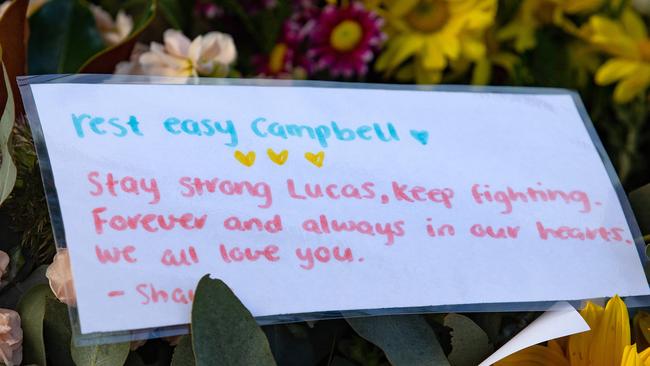 rest easy Campbell
Stay strong Lucas, keep fighting.
Forever and always in our hearts.
We all love you.
-